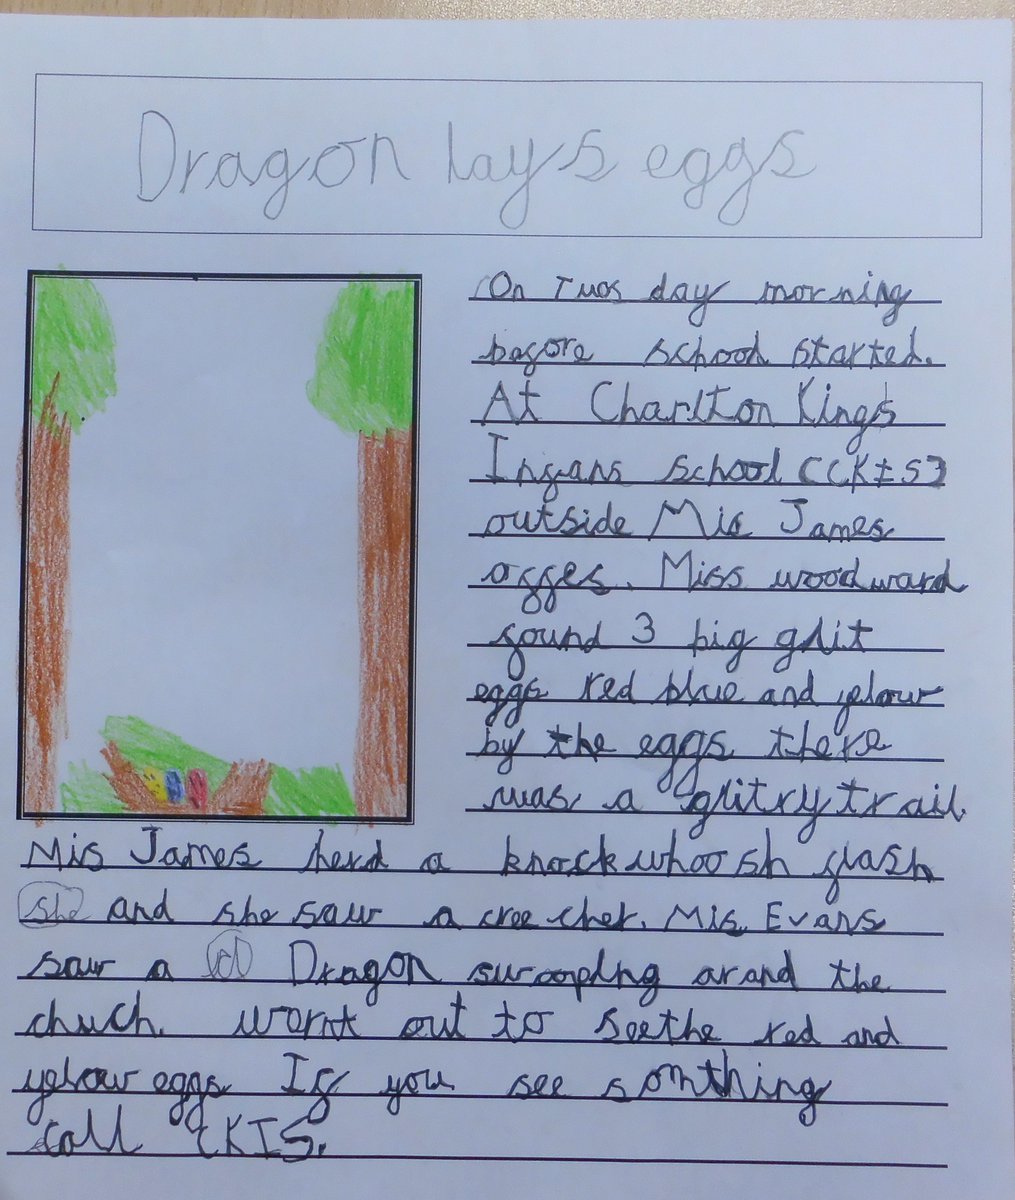 Dragon lays eggs
On Tuos day morning
before school started.
At Charlton Kings
Infans school (CKIS)
outside Mis James
offes. Miss woodward
found 3 big glit
eggs red blue and yelow
by the eggs there
was a glitry trail.
Mis James herd a knock whoosh flash
she and she saw a cree cher. Mis Evans
saw a d Dragon swooping arand the
chuch. wornt out to seethe red and
yelow eggs If you see somthing
call CKIS.